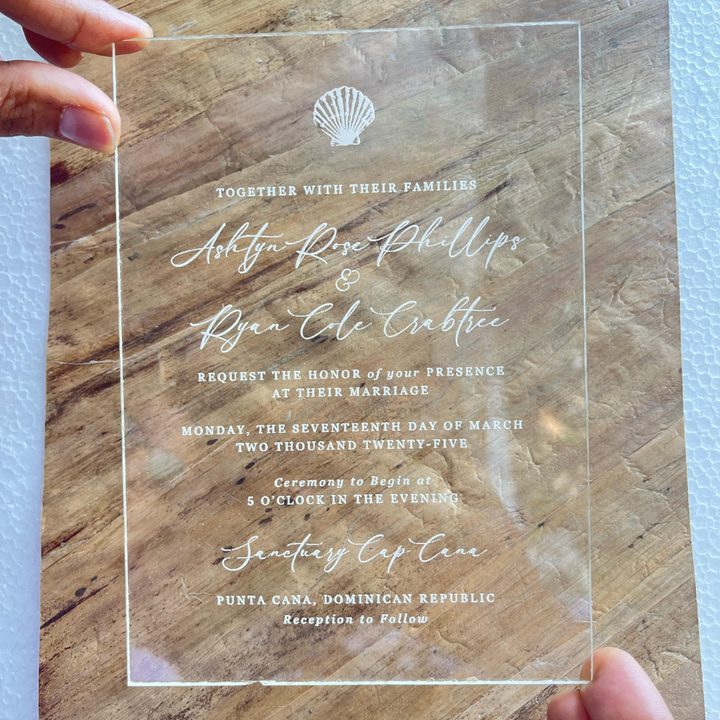 TOGETHER WITH THEIR FAMILIES
Ashtyn Rose Phillips
&
Ryan Cole Crabtree
REQUEST THE HONOR of your PRESENCE
AT THEIR MARRIAGE
MONDAY, THE SEVENTEENTH DAY OF MARCH
TWO THOUSAND TWENTY-FIVE
Ceremony to Begin at
5 O'CLOCK IN THE EVENING
Sanctuary Cap Cana
PUNTA CANA, DOMINICAN REPUBLIC
Reception to Follow